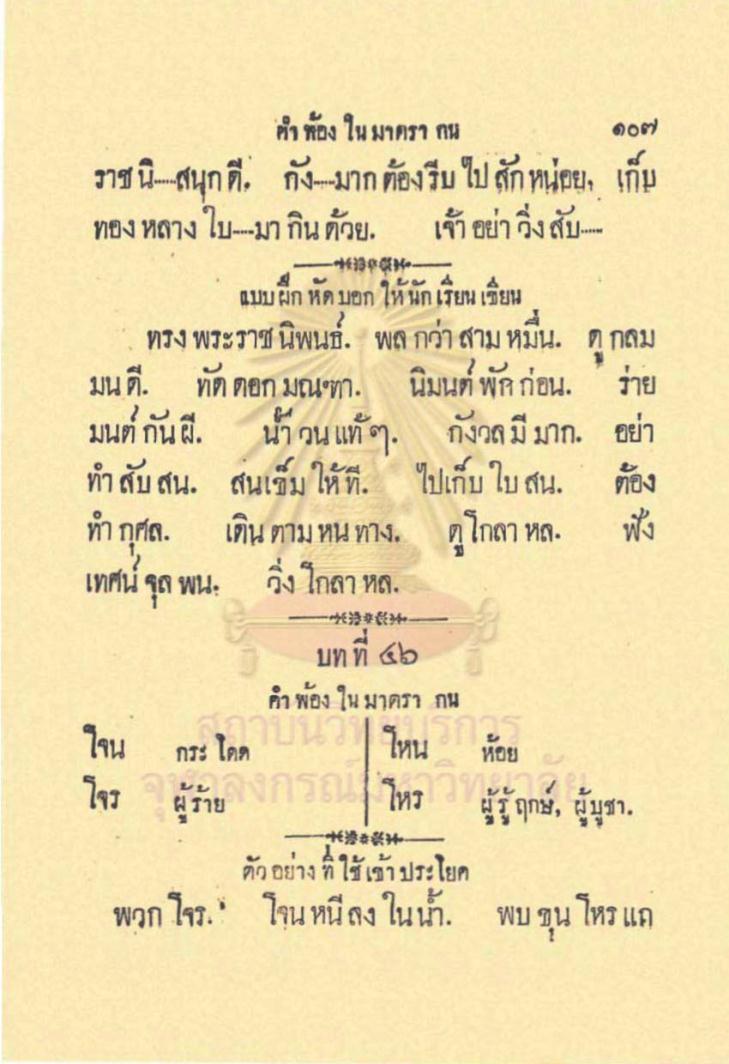 คำ พ้อง ใน มาตรา กน ๑๐๗
ราช นิ----สนุก ดี. กัง----มาก ต้อง รีบ ไป สัก หน่อย, เก็บ
ทอง หลาง ใบ----มา กิน ด้วย. เจ้า อย่า วิ่ง สับ----
แบบ ฝึก หัด บอก ให้ นัก เรียน เขียน
ทรง พระ ราช นิพนธ์. พล กว่า สาม หมื่น. ดู กลม
มน ดี. ทัด ดอก มณฑา. นิมนต์ พัก ก่อน. ร่าย
มนต์ กัน ผี. น้ำ วน แท้ ๆ. กังวล มี มาก. อย่า
ทำ สับ สน. สน เข็ม ให้ ที. ไป เก็บ ใบ สน. ต้อง
ทำ กุศล. เดิน ตาม หน ทาง. ดู โกลา หล. ฟัง
เทศน์ จุล พน. วิ่ง โกลา หล.
บท ที่ ๔๖
คำ พ้อง ใน มาตรา กน
โจน กระ โดด โหน ห้อย
โจร ผู้ ร้าย โหร ผู้ รู้ ฤกษ์, ผู้ บูชา.
ตัว อย่าง ที่ ใช้ เข้า ประโยค
พวก โจร. โจน หนี ลง ใน น้ำ. พบ ขุน โหร แถ
สถาบันวิทยบริการ
จุฬาลงกรณ์มหาวิทยาลัย